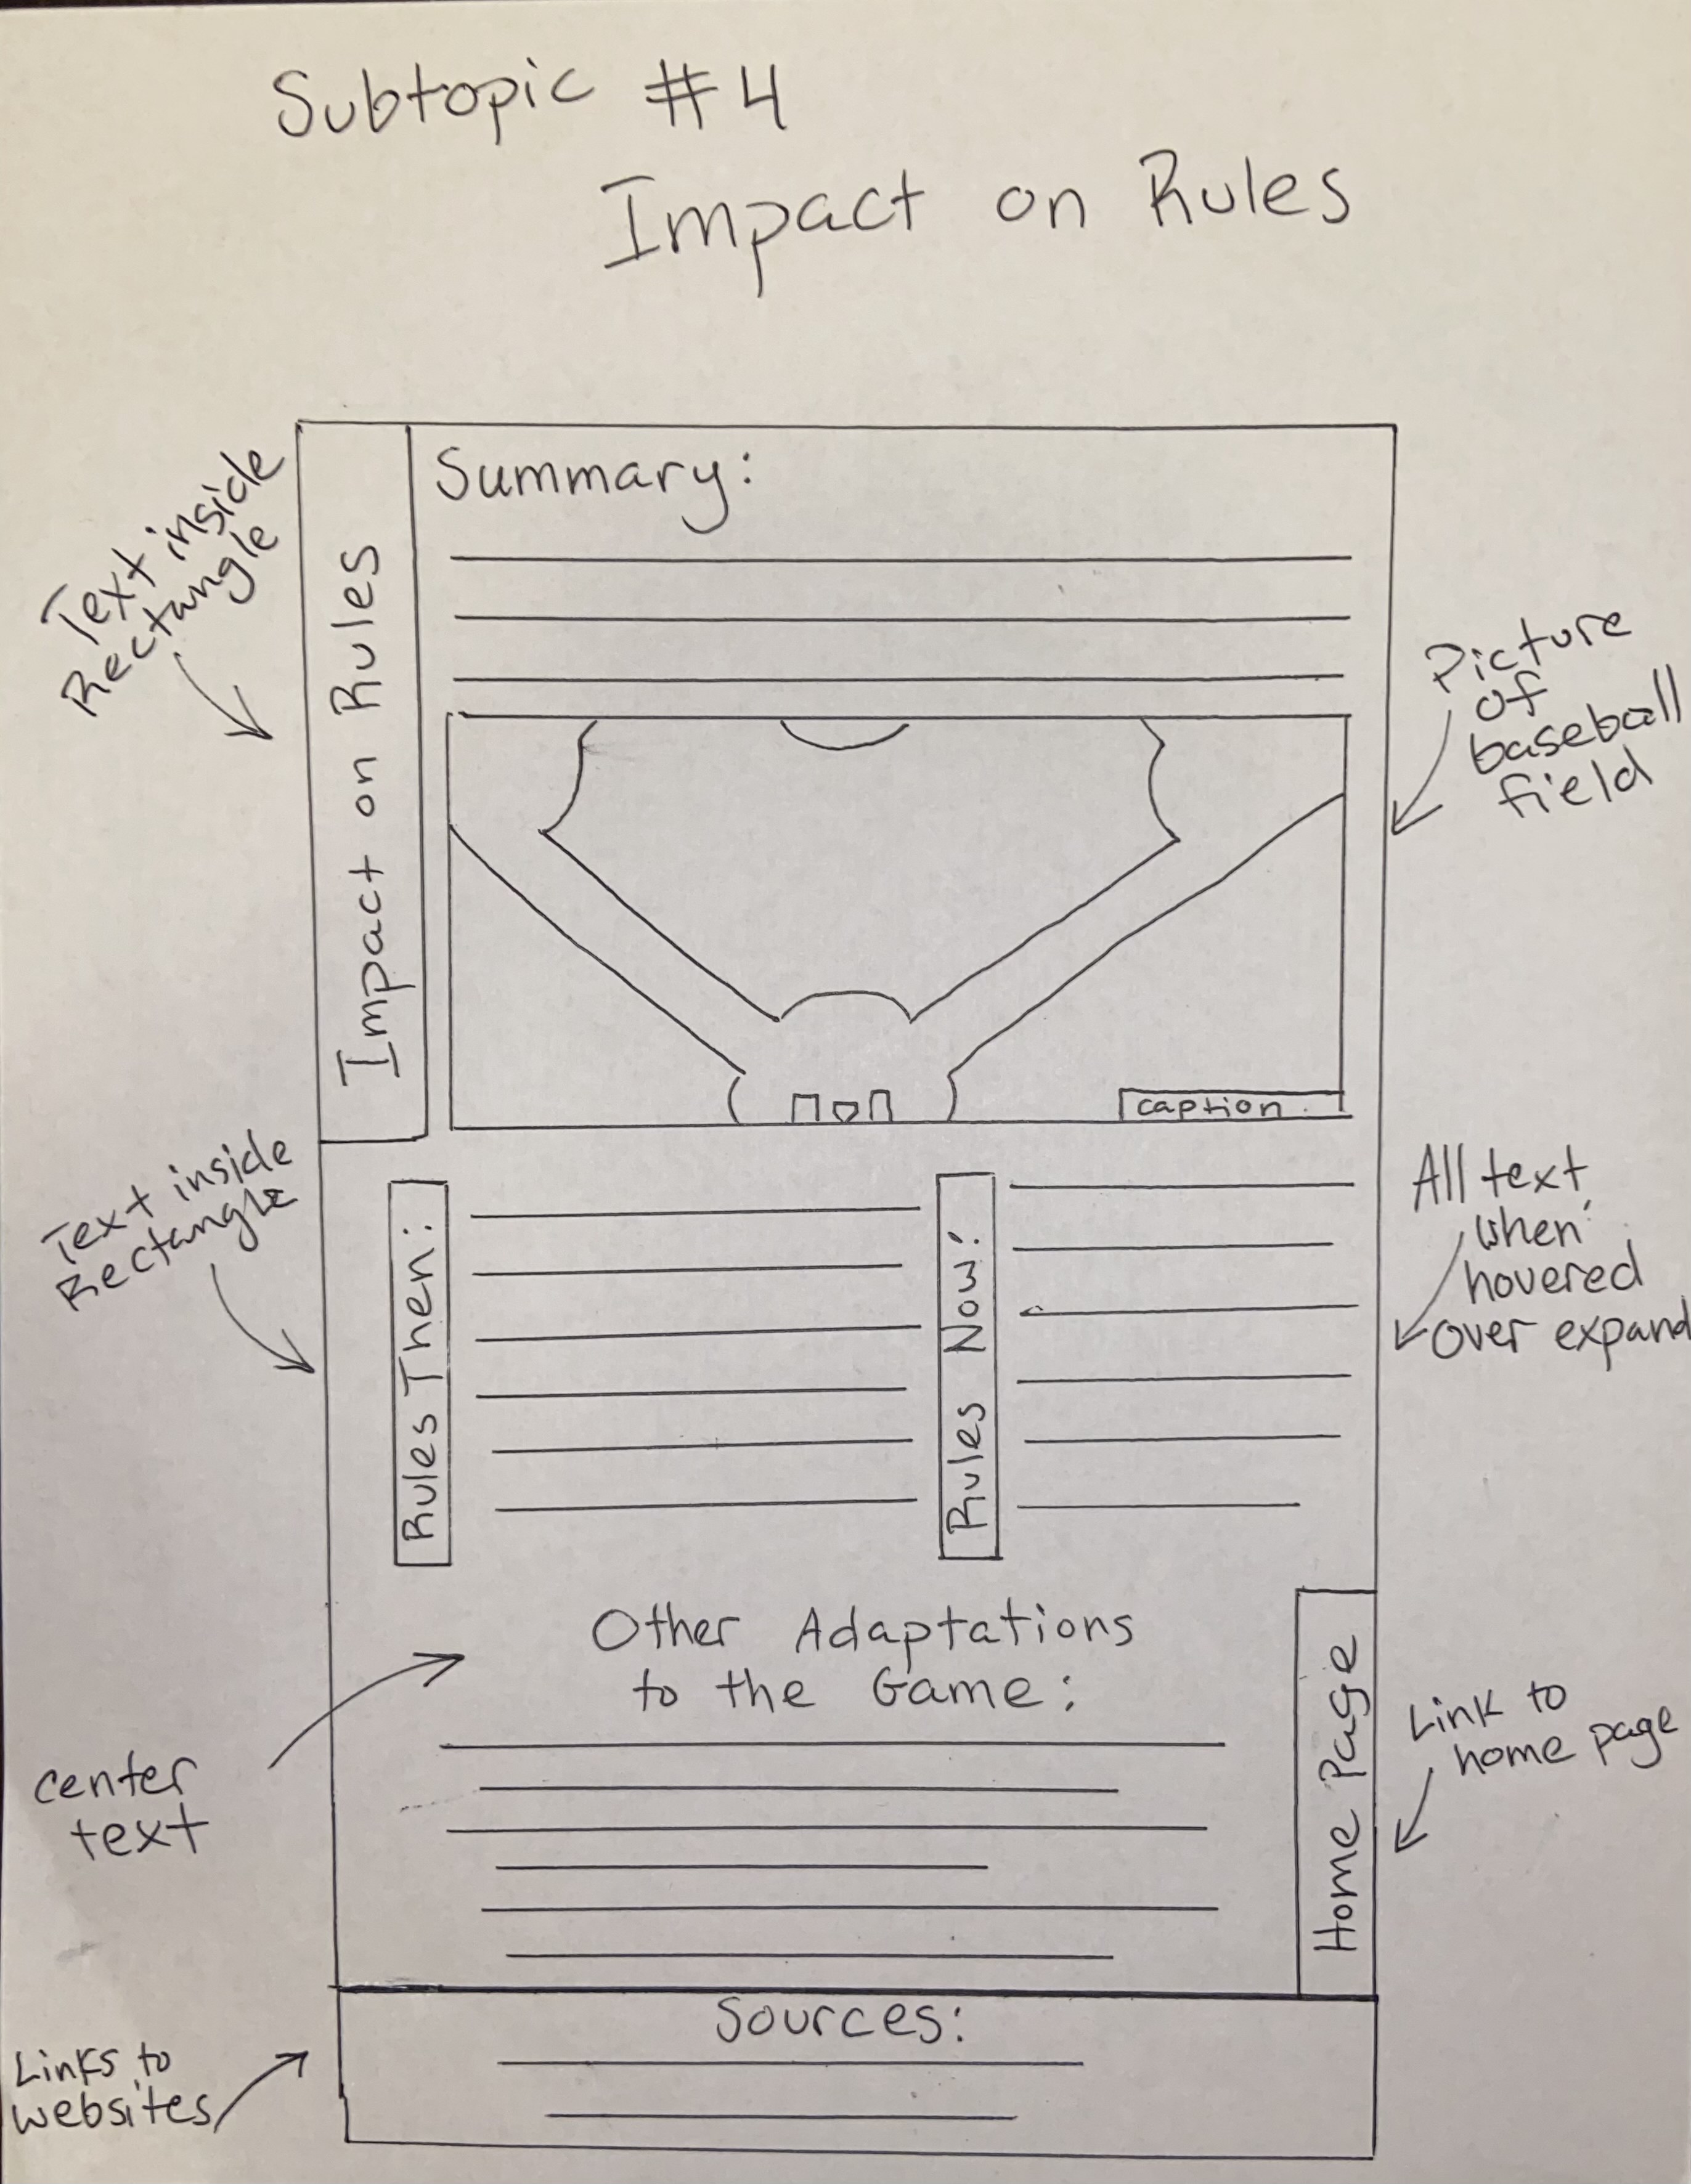 Subtopic #4
Impact on Rules
Text inside
Rectangle
Impact on Rules
Summary:
Picture
of
baseball
field
caption
Text inside
Rectangle
Rules Then:
Rules Now:
All text
when
hovered
over expand
Other Adaptations
to the Game:
center
text
Home Page
Link to
home page
Sources:
Links to
websites